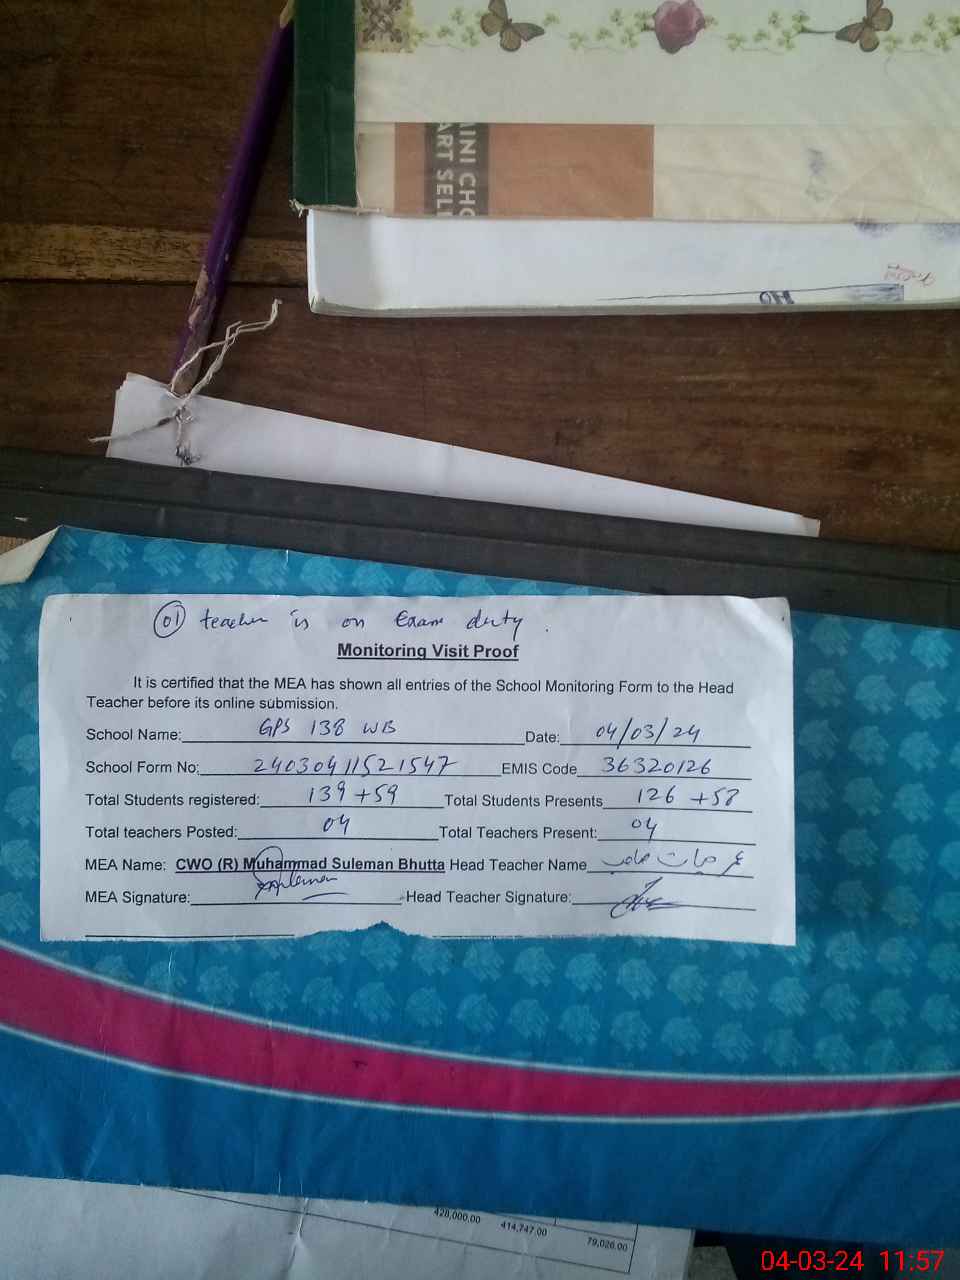 MINI CHO
ART SELE
01 teacher is on Exam duty.
Monitoring Visit Proof
It is certified that the MEA has shown all entries of the School Monitoring Form to the Head
Teacher before its online submission.
School Name: GPS 138 WB Date: 04/03/24
School Form No: 24030411521547 EMIS Code 36320126
Total Students registered: 139 +59 Total Students Presents 126 +58
Total teachers Posted: 04 Total Teachers Present: 04
MEA Name: CWO (R) Muhammad Suleman Bhutta Head Teacher Name
MEA Signature: Head Teacher Signature:
428,000.00 414,747.00 79,026.00
04-03-24 11:57